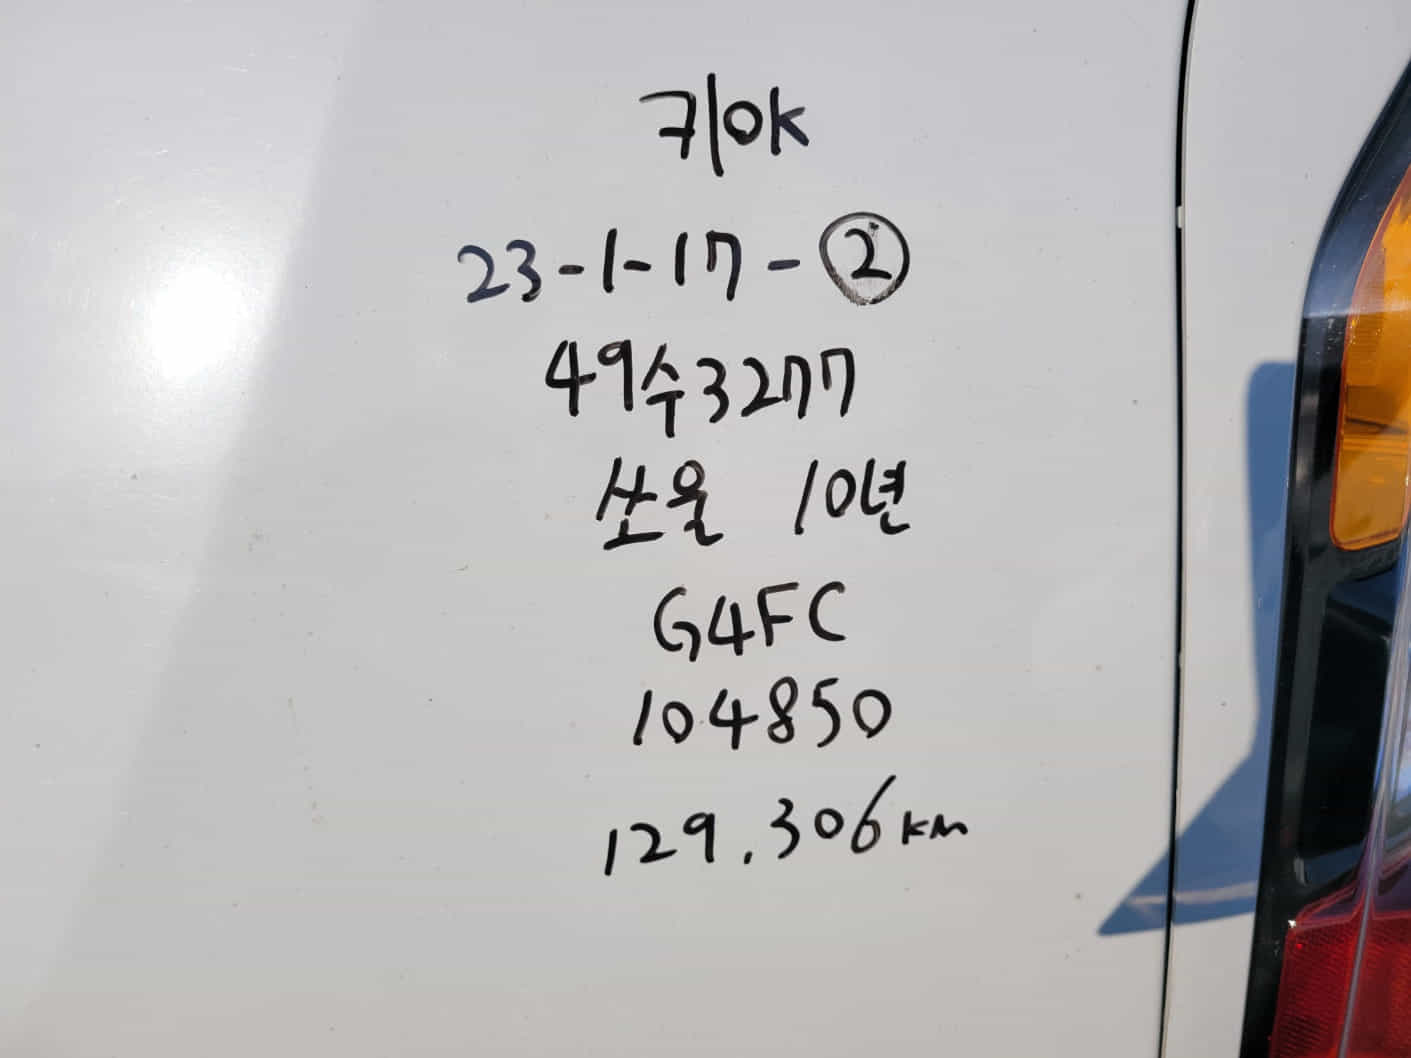 키OK
23-1-17-②
49수3277
쏘울 10년
G4FC
104850
129.306KM